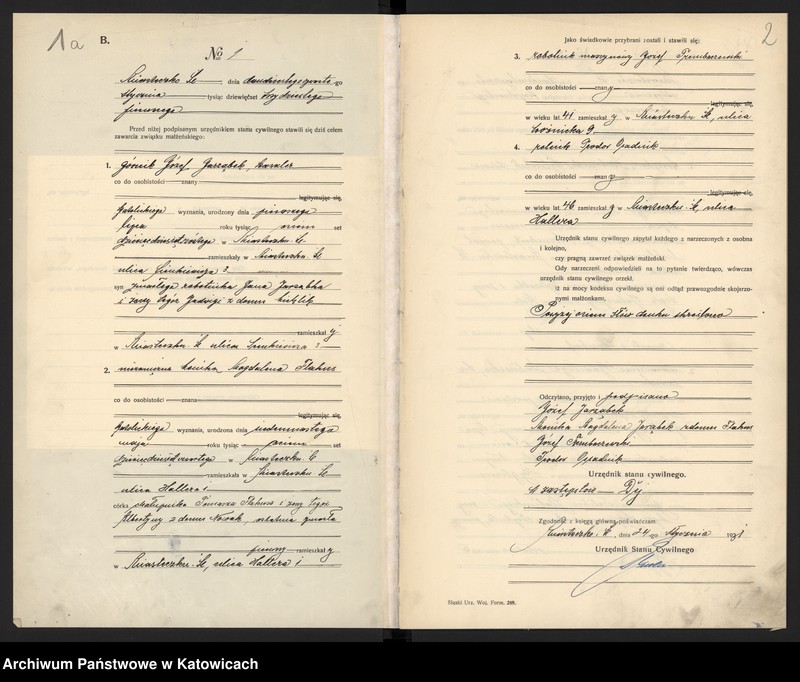 1a
B.
№ 1
Miasteczko Śl. dnia dwudziestegoczwarte-go
stycznia tysiąc dziewięćset trzydziestego
pierwszego
Przed niżej podpisanym urzędnikiem stanu cywilnego stawili się dziś celem
zawarcia związku małżeńskiego:
1. górnik Józef Jarząbek, kawaler
co do osobistości znany
legitymując się,
katolickiego wyznania, urodzony dnia pierwszego
lipca roku tysiąc osiem set
w Miasteczku Śl.
zamieszkały w Miasteczku Śl.
ulica Sienkiewicza 3
syn zmarłego robotnika Jana Jarząbka
i żony tegoż Jadwigi z domu
zamieszkał ej
w Miasteczku Śl. ulica Sienkiewicza 3
2. niezamężna Monika Magdalena Flakus
co do osobistości znana
legitymując się,
katolickiego wyznania, urodzona dnia siedemnastego
maja roku tysiąc osiem set
w Miasteczku Śl.
zamieszkała w Miasteczku Śl.
ulica Hallera 1
córka chałupnika Tomasza Flakusa i żony tegoż
z domu Nowak, ostatnia zmarła
pierwszy zamieszkał y
w Miasteczku Śl., ulica Hallera 1
2
Jako świadkowie przybrani zostali i stawili się:
3. robotnik maszynowy Józef
co do osobistości znany
legitymując się,
w wieku lat 41 zamieszkał y w Miasteczku Śl., ulica
9
4. rolnik Teodor
co do osobistości znany
legitymując się,
w wieku lat 46 zamieszkał y w Miasteczku Śl., ulica
Hallera
Urzędnik stanu cywilnego zapytał każdego z narzeczonych z osobna
i kolejno,
czy pragną zawrzeć związek małżeński.
Ody narzeczeni odpowiedzieli na to pytanie twierdząco, wówczas
urzędnik stanu cywilnego orzekł,
iż na mocy kodeksu cywilnego są oni odtąd prawozgodnie skojarzo-
nymi małżonkami,
Powyżej osiem słów druku skreślono
Odczytano, przyjęto i podpisano
Józef Jarząbek
Monika Magdalena Jarząbek z domu Flakus
Józef
Teodor
Urzędnik stanu cywilnego.
W zastępstwie
Zgodność z księgą główną poświadczam
Miasteczko Śl., dnia 24-go stycznia 1931
Urzędnik Stanu Cywilnego
Śląski Urz. Woj. Form. 249.
Archiwum Państwowe w Katowicach